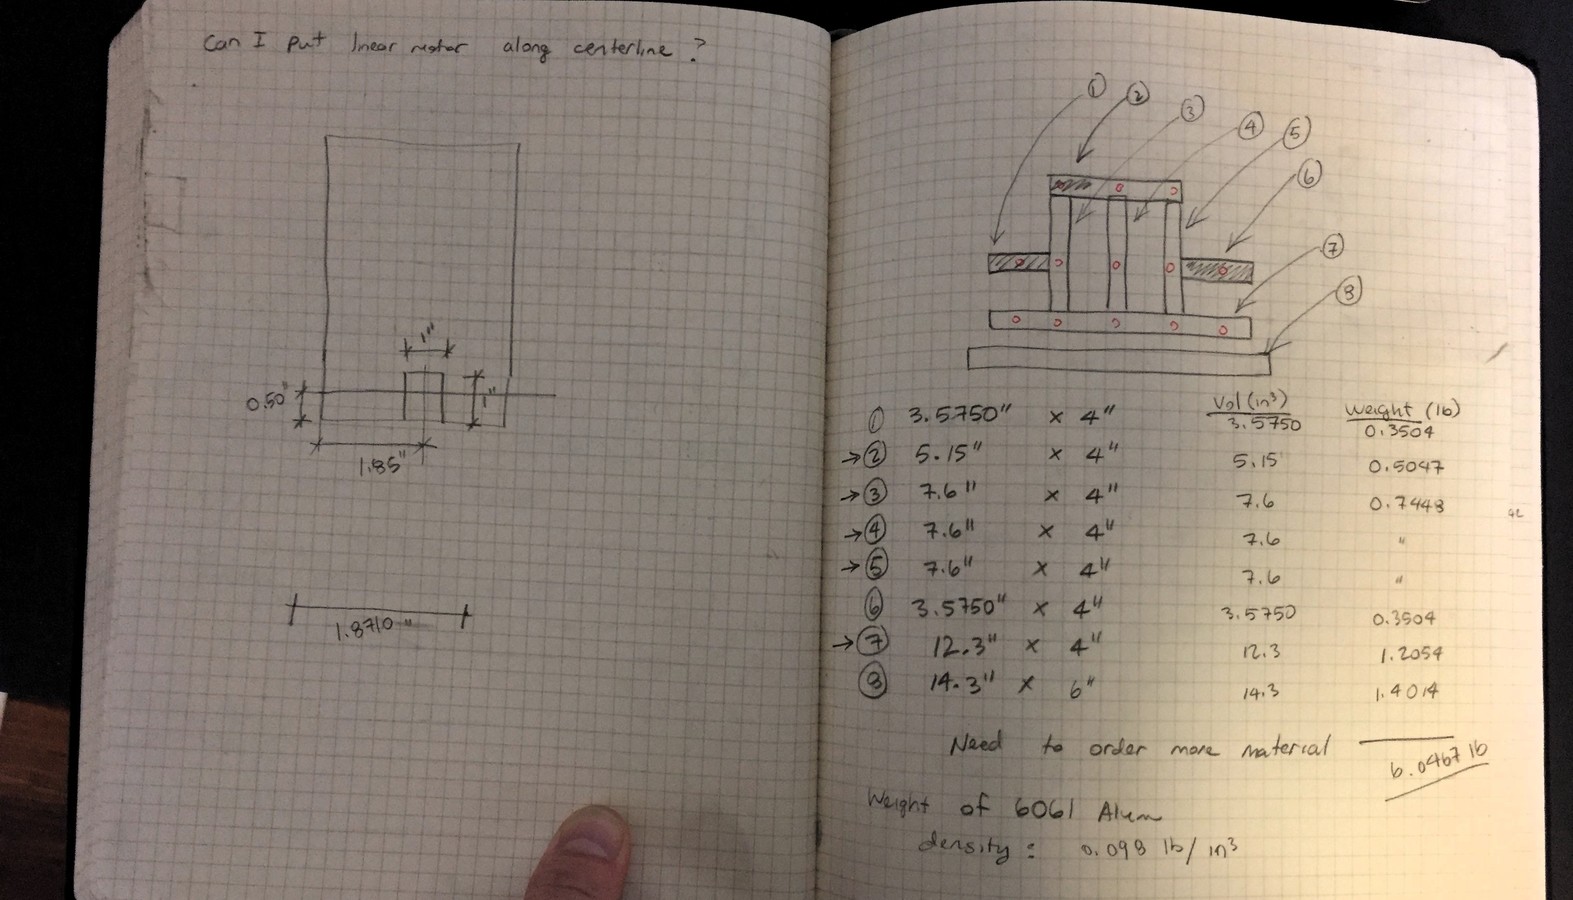 Can I put linear motor along centerline ?
1"
0.50"
1"
1.85"
1.8710"
①
②
③
④
⑤
⑥
⑦
⑧
Vol (in³) Weight (lb)
① 3.5750" x 4" 3.5750 0.3504
→② 5.15" x 4" 5.15 0.5047
→③ 7.6" x 4" 7.6 0.7448
→④ 7.6" x 4" 7.6 "
→⑤ 7.6" x 4" 7.6 "
⑥ 3.5750" x 4" 3.5750 0.3504
→⑦ 12.3" x 4" 12.3 1.2054
⑧ 14.3" x 6" 14.3 1.4014
Need to order more material
6.0467 lb
Weight of 6061 Alum
density : 0.098 lb/in³